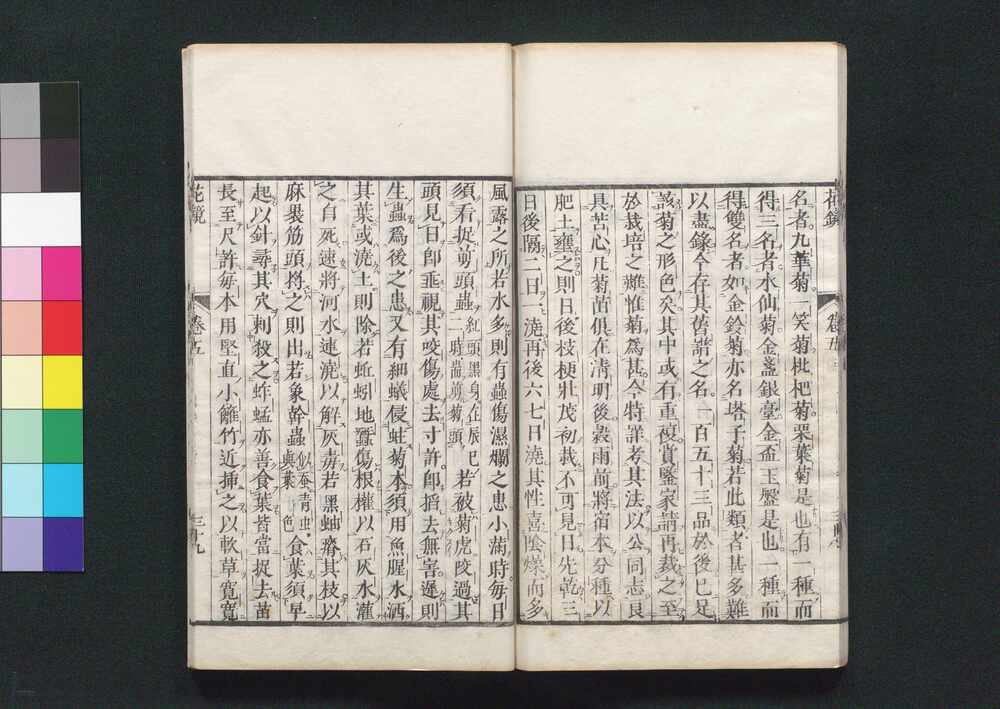 花鏡
卷五
名者九華菊一笑菊枇杷菊栗葉菊是也有一種而
得三名者水仙菊金盞銀臺金盃玉盤是也一種而
得雙名者如金鈴菊亦名塔子菊若此類者甚多難
以盡錄今存其舊譜之名一百五十三品於後已足
該菊之形色矣其中或有重複賞鑒家請再裁之至
於栽培之難惟菊爲甚今特詳考其法以公同志良
具苦心凡菊苗俱在清明後穀雨前將宿本分種以
肥土壅之則日後枝梗壯茂初栽不可見日先乾三
日後隔二日一澆再後六七日澆其性喜陰燥而多
風露之所若水多則有蟲傷濕爛之患小滿時每日
須看捉剪頭蟲紅頭黑身在辰巳二時嚙剪菊頭若被菊虎咬過其
頭見日卽垂視其咬傷處去寸許卽掐去無害遲則
生蟲爲後之患又有細蟻侵蛀菊本須用魚腥水洒
其葉或澆土則除若蚯蚓地蠶傷根權以石灰水灌
之自死速將河水連澆以解灰毒若黑蚰瘠其枝以
麻裹筋頭將之則出若象幹蟲似蚕青虫與葉色食葉須早
起以針尋其穴刺殺之蚱蜢亦善食葉皆當捉去苗
長至尺許每本用堅直小籬竹近插之以軟草寬寬
花鏡
卷五
三十九